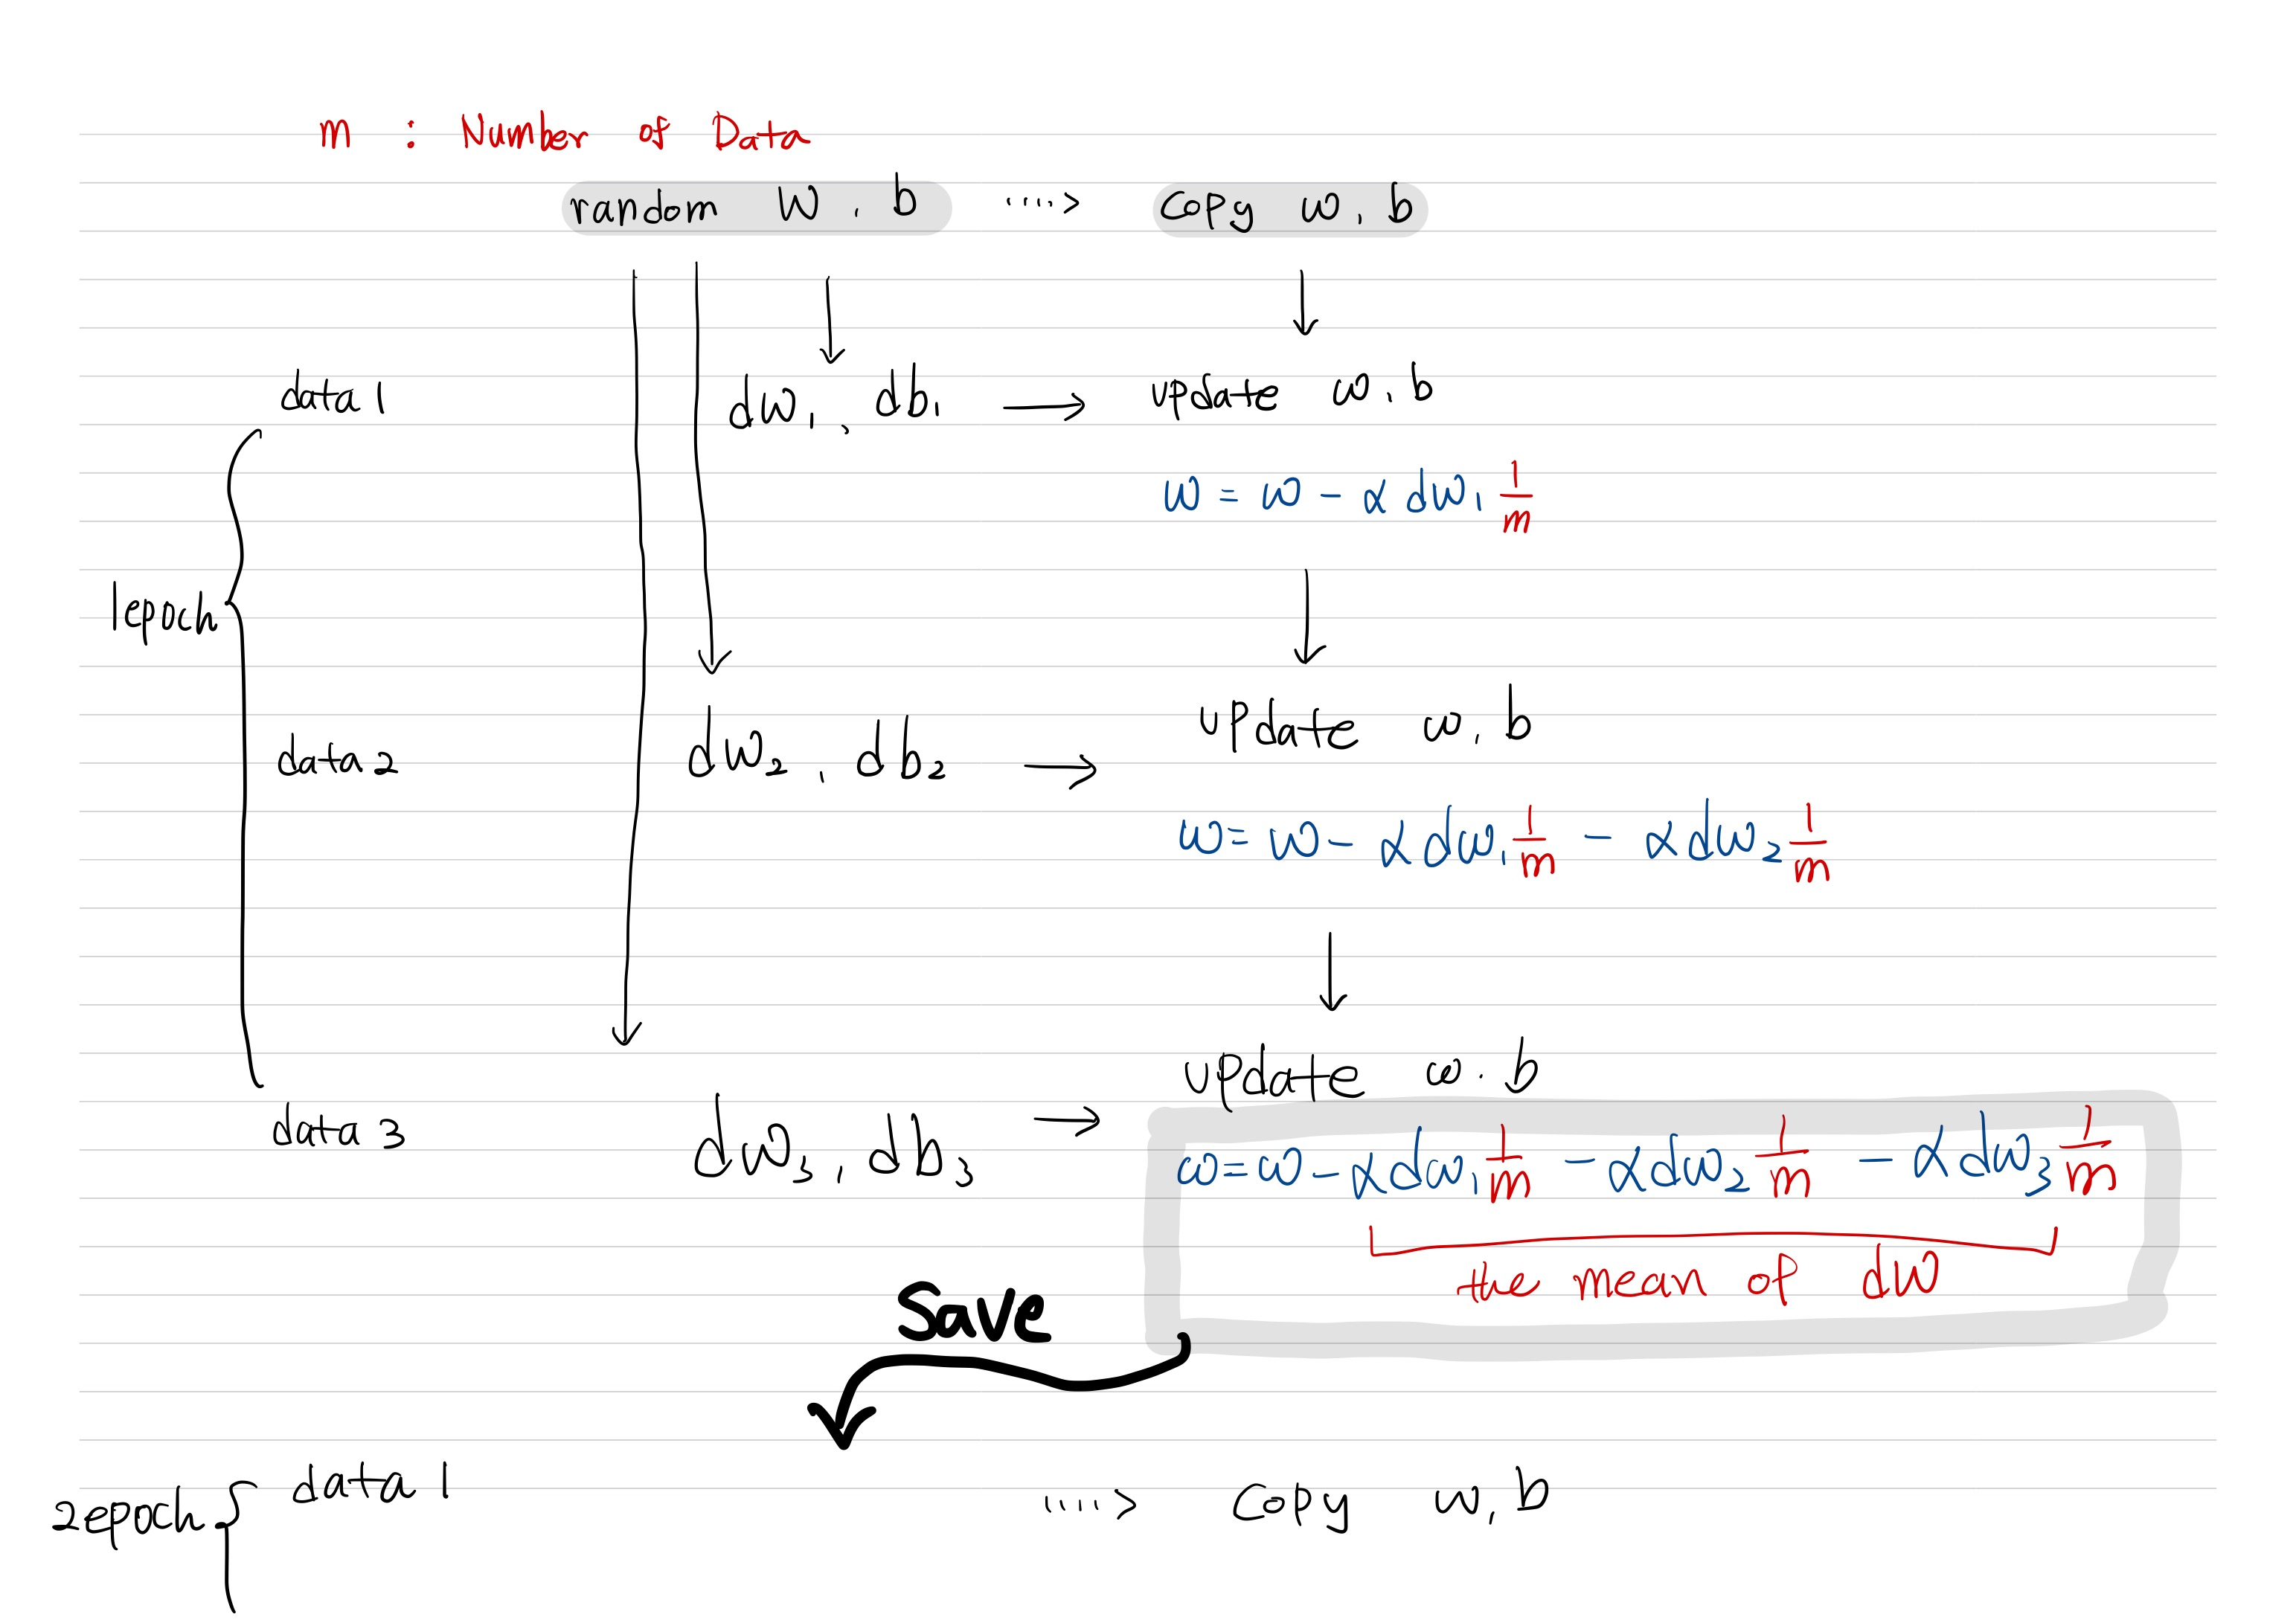 m : Number of Data
random W, b ····> copy w, b
data 1 dw₁, db₁ → update w, b
w = w - α dw₁ 1/m
1epoch
data 2 dw₂, db₂ → update w, b
w = w - α dw₁ 1/m - α dw₂ 1/m
update w, b
data 3 dw₃, db₃ →
w = w - α dw₁ 1/m - α dw₂ 1/m - α dw₃ 1/m
the mean of dW
Save
2epoch data 1 ····> copy w, b